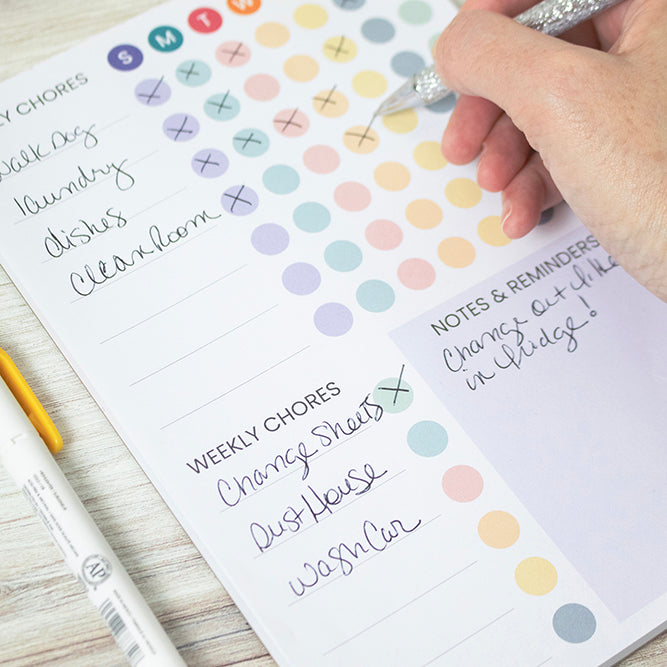 S M T W
LY CHORES
Walk Dog
laundry
dishes
Clean Room
NOTES & REMINDERS
Change out filte
in fridge!
WEEKLY CHORES
Change Sheets
Dust House
Wash Car
AP